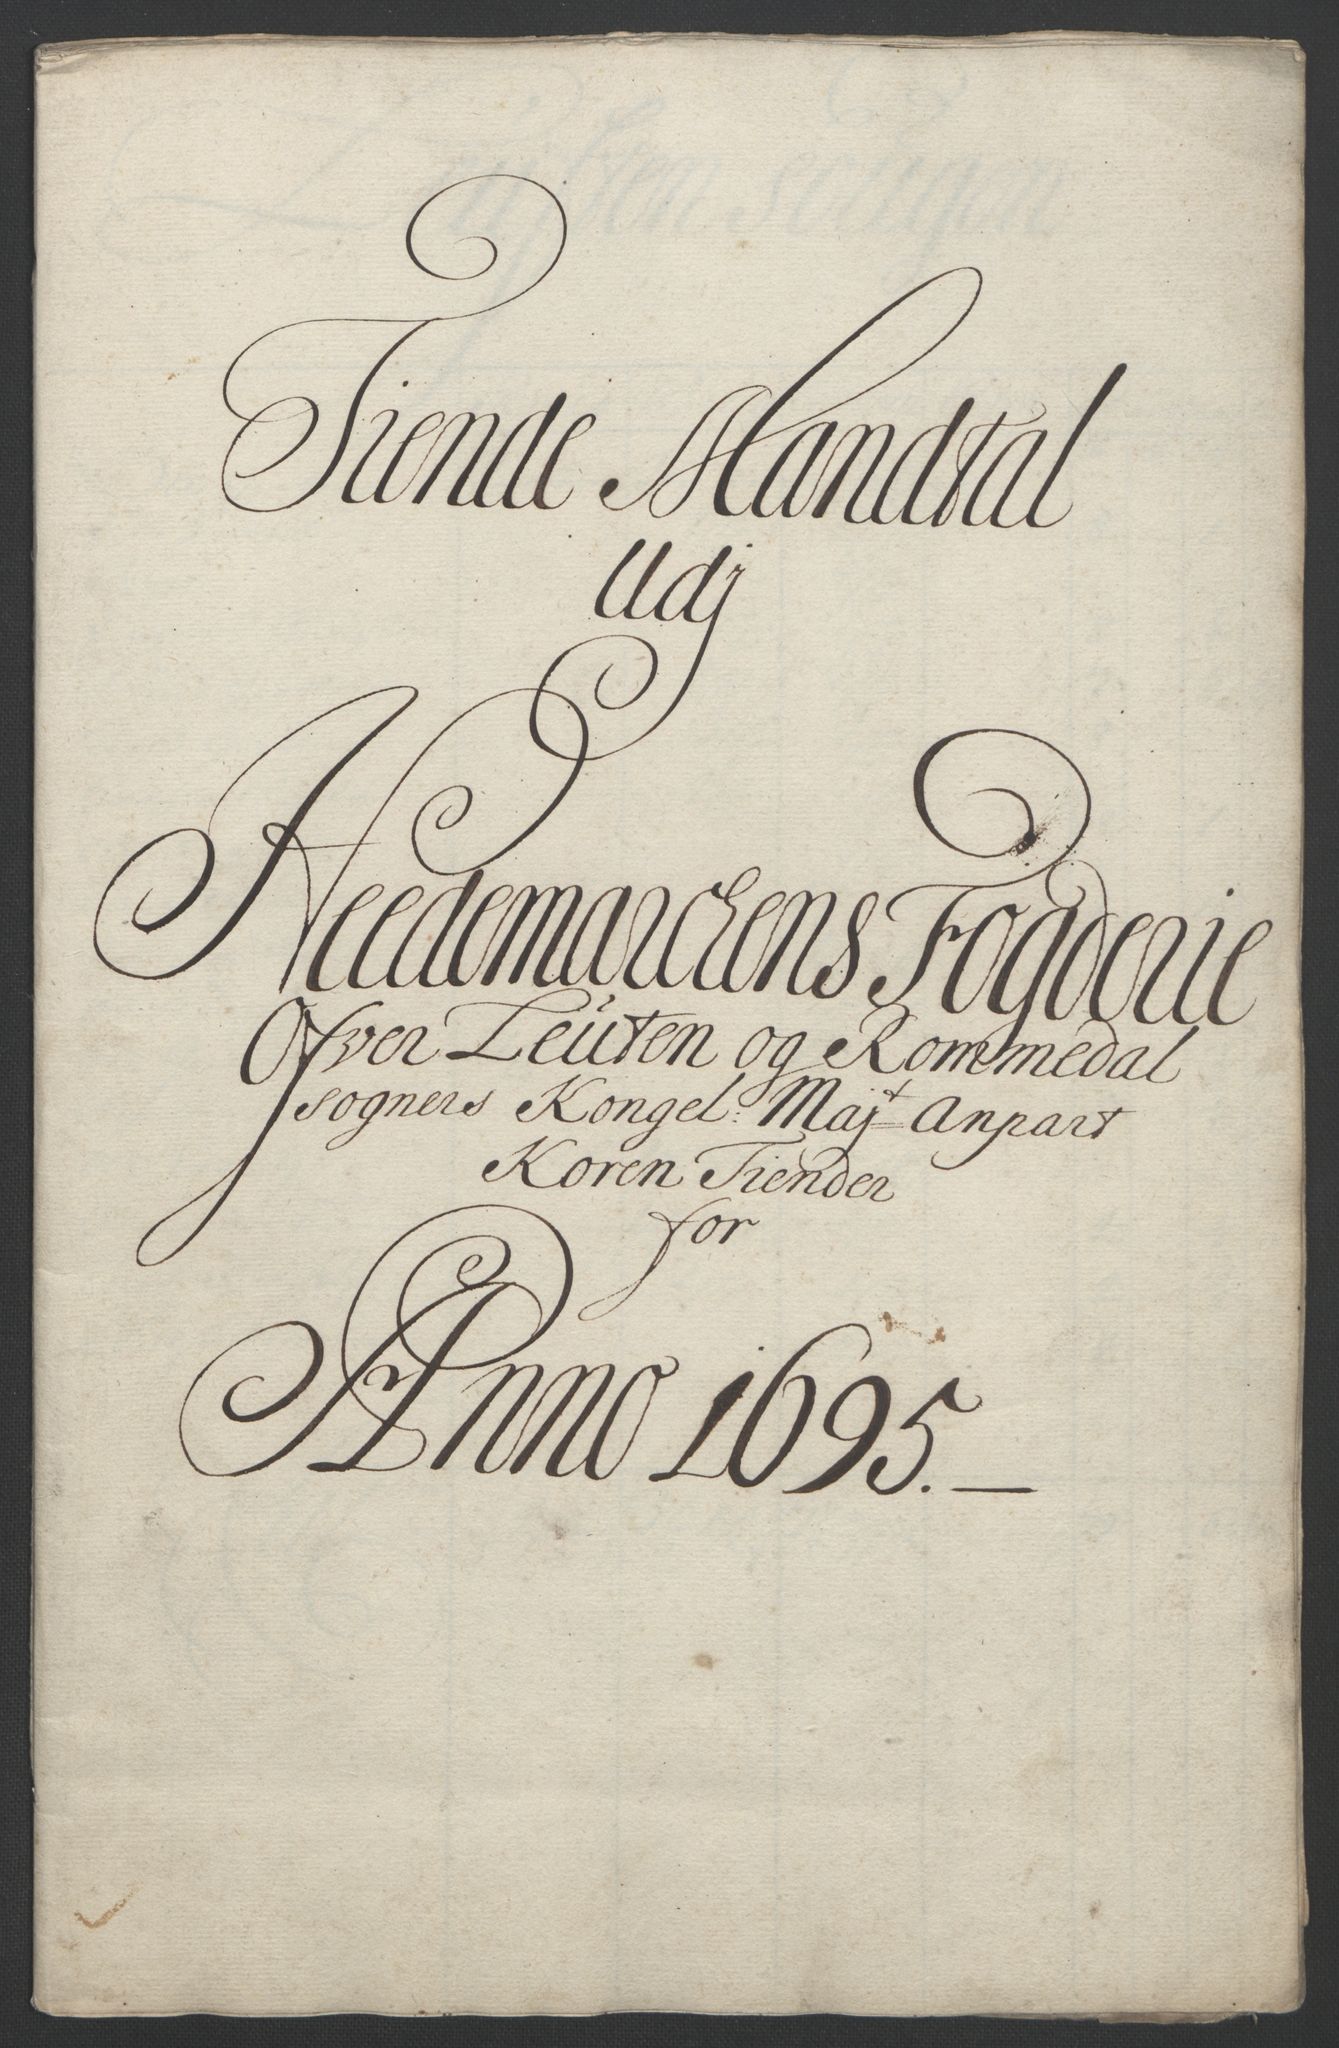 Tiende Mandtal
Udj
Heedemarckens Fogderie
Ofver Leuten og Rommedal
sogners Kongel: Majt Anpart
Koren Tiender
for
Anno 1695.